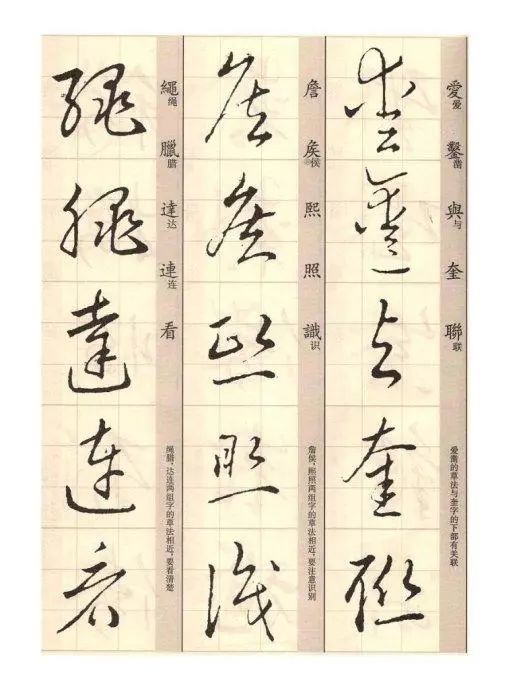 愛爱 鑿凿 與与 奎 聯联
爱凿的草法与奎字的下部有关联
詹 矦侯 熙 照 識识
詹侯，熙照两组字的草法相近，要注意识别
繩绳 臘腊 達达 連连 看
绳腊，达连两组字的草法相近，要看清楚